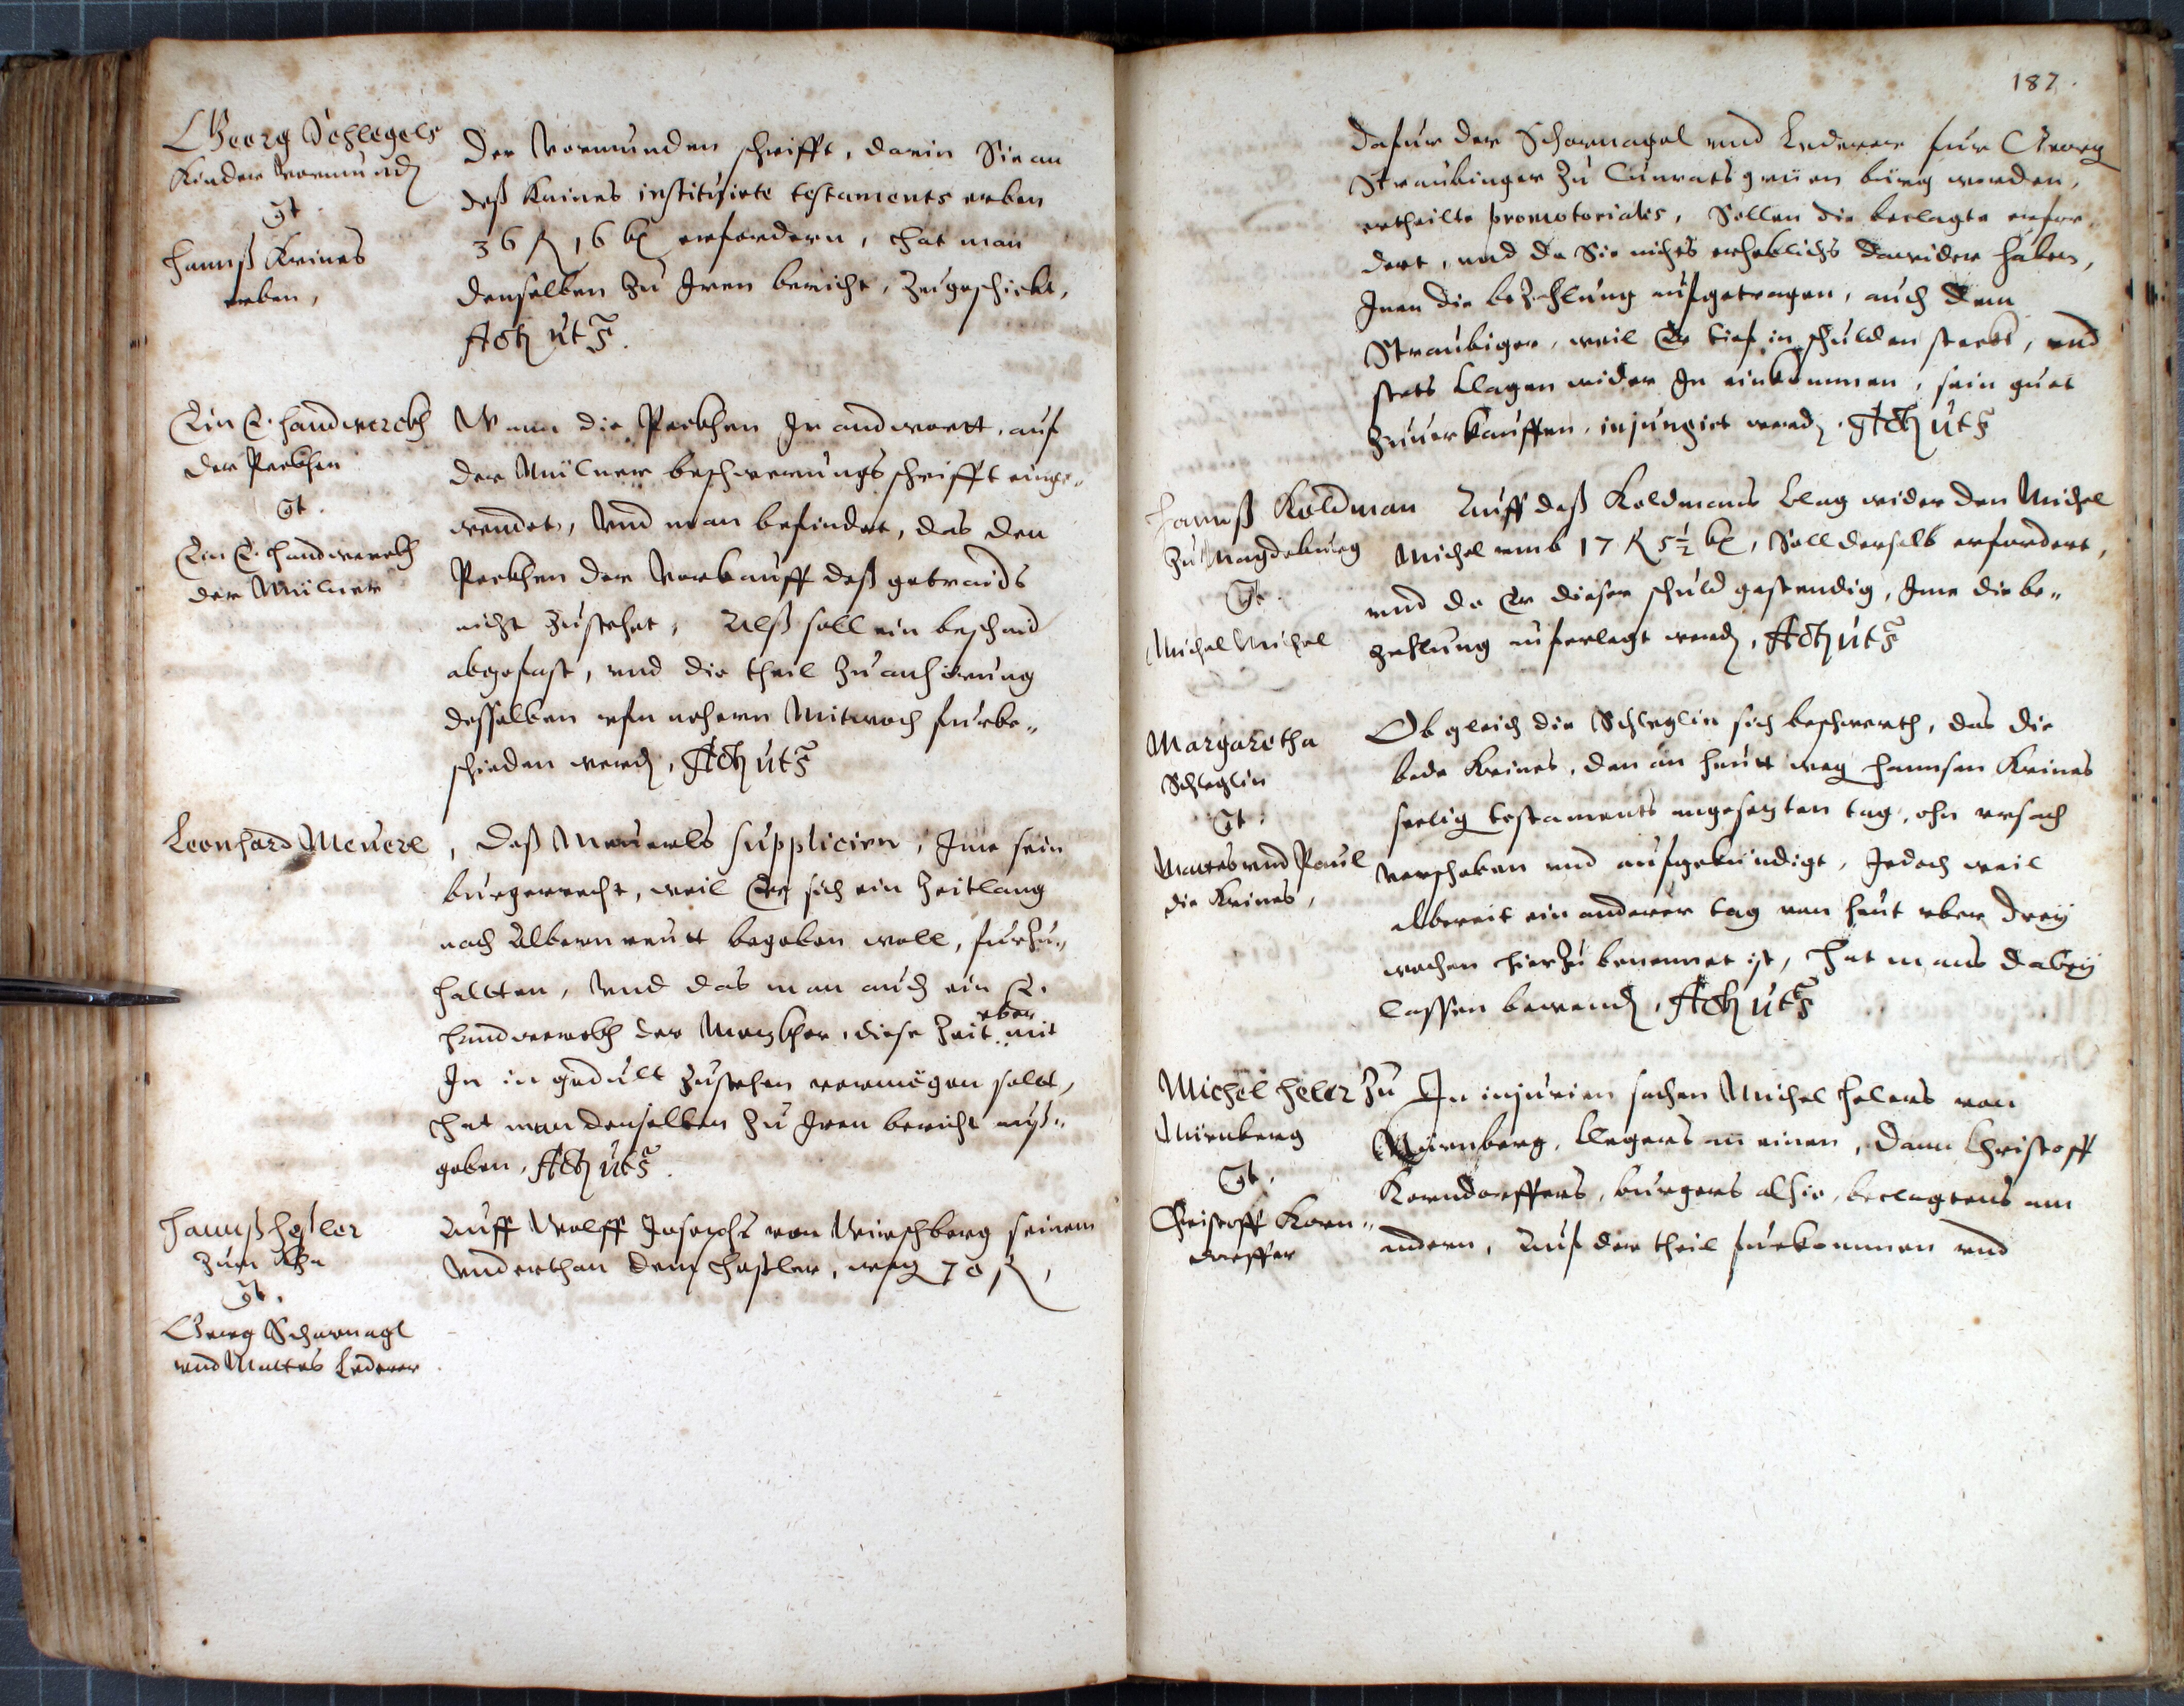 Georg Schlegels
Kinder Vormundt
Ct.
Hannß Krines
erben,
Der Vormunden schrifft, darin Sie an
deß Krines instituirte testaments erben
36 R 16 bz erfordern, hat man
denselben zu Iren bericht, zugeschickt,
Act. ut s.
Ein E. Handwerckh
der Peckhen
Ct.
Ein E. Handwerckh
der Mülner
Wann die Peckhen Ir andwortt, auf
der Mülner beschwerungs schrifft einge-
wendet, Vnd man befindet, das den
Peckhen der Vorkauff deß getraids
nicht zustehet, Alß soll ein beschaid
abgefast, vnd die theil zu anhörung
desselben vfm nehern Mitwoch fürbe-
schieden werd, Act. ut s.
Leonhard Meuerl
Deß Meuerls suppliciren, Ime sein
burgerrecht, weil Er sich ein Zeitlang
nach Albernreutt begeben woll, fürzu-
hallten, Vnd das man auch ein E.
Handwerckh der Mezkher, diese Zeit vber mit
Im in gedult zustehen vermögen sollt,
hat man denselben zu Iren bericht auß-
geben, Act. ut s.
Hannß Heßler
zum
Ct.
Georg Scharnagl
vnd Mattes Lederer
Auff Wolff Josephs von Wirschberg seinem
Vnderthan dem Heßler, weg 70 R,
187.
dafur der Scharnagel vnd Lederer fur Georg
Straubinger zu Cunratsgrüen bürg worden,
ertheilte promotorialis, Sollen die beclagte erfor-
dert, vnd da Sie nichts erheblichs dawider haben,
Inen die bezahlung aufgetragen, auch dem
Straubiger, weil Er tief in schulden steckt, vnd
stets klagen wider In einkommen, sein guet
zuuerkauffen, injungirt werd. Act. ut s.
Hannß Koldman
zu Magdeburg
Ct.
Michel Michel
Auff deß Koldmans klag wider den Michel
Michel vmb 17 R 5½ bz, Soll derselb erfordert,
vnd da Er dieser schuld gestendig, Ime die be-
zahlung auferlegt werd, Act. ut s.
Margaretha
Schleglin
Ct.
Mattes vnd Paul
die Krines,
Ob gleich die Schleglin sich beschwerth, das die
bede Krines, den an heutt weg Hannsen Krines
seelig testaments angesezten tag, ohn vrsach
verschoben vnd aufgekündigt, Jedoch weil
albereit ein anderer tag von heut vber drey
wochen hierzu benennet ist, hat mans dabey
lassen bewend, Act. ut s.
Michel Heler zu
Nürnberg
Ct.
Christoff Korn-
dorffer
In injurien sachen Michel Helers von
Nürnberg, klegers an einen, Dann Christoff
Korndorffers, burgers alhie, beclagtens am
andern, Auf der theil fürkommen vnd